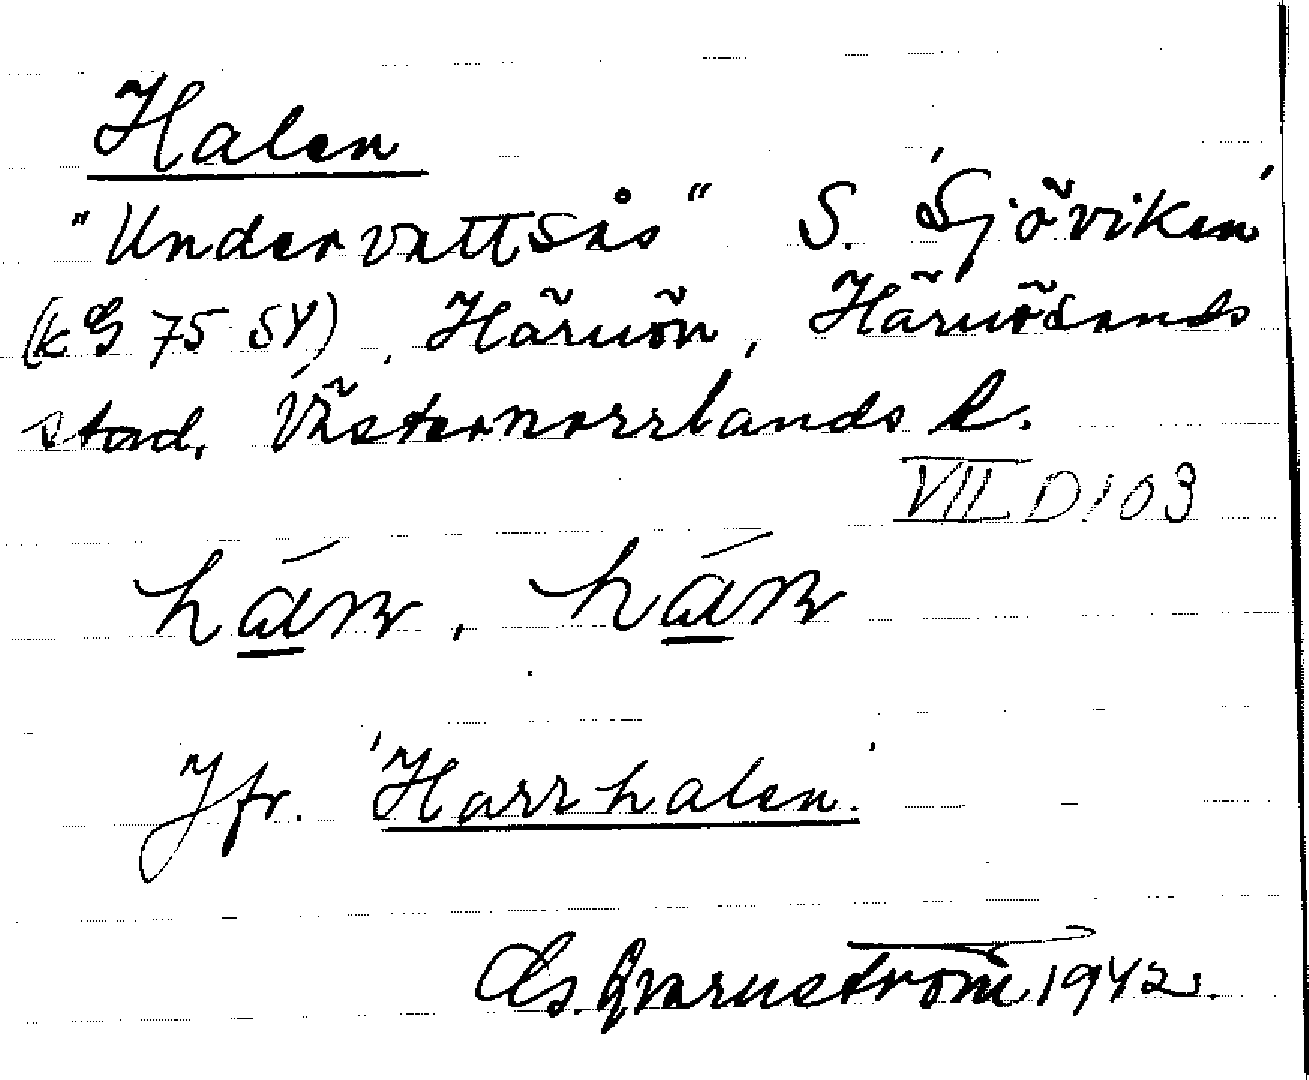 Halen
"Undervattsås" S. 'Sjöviken'
75 SV), Härnön, Härnösands
stad, Västernorrlands l.
VII D! 03
Jfr. 'Harrhalen.'
Qvarnström 1942.